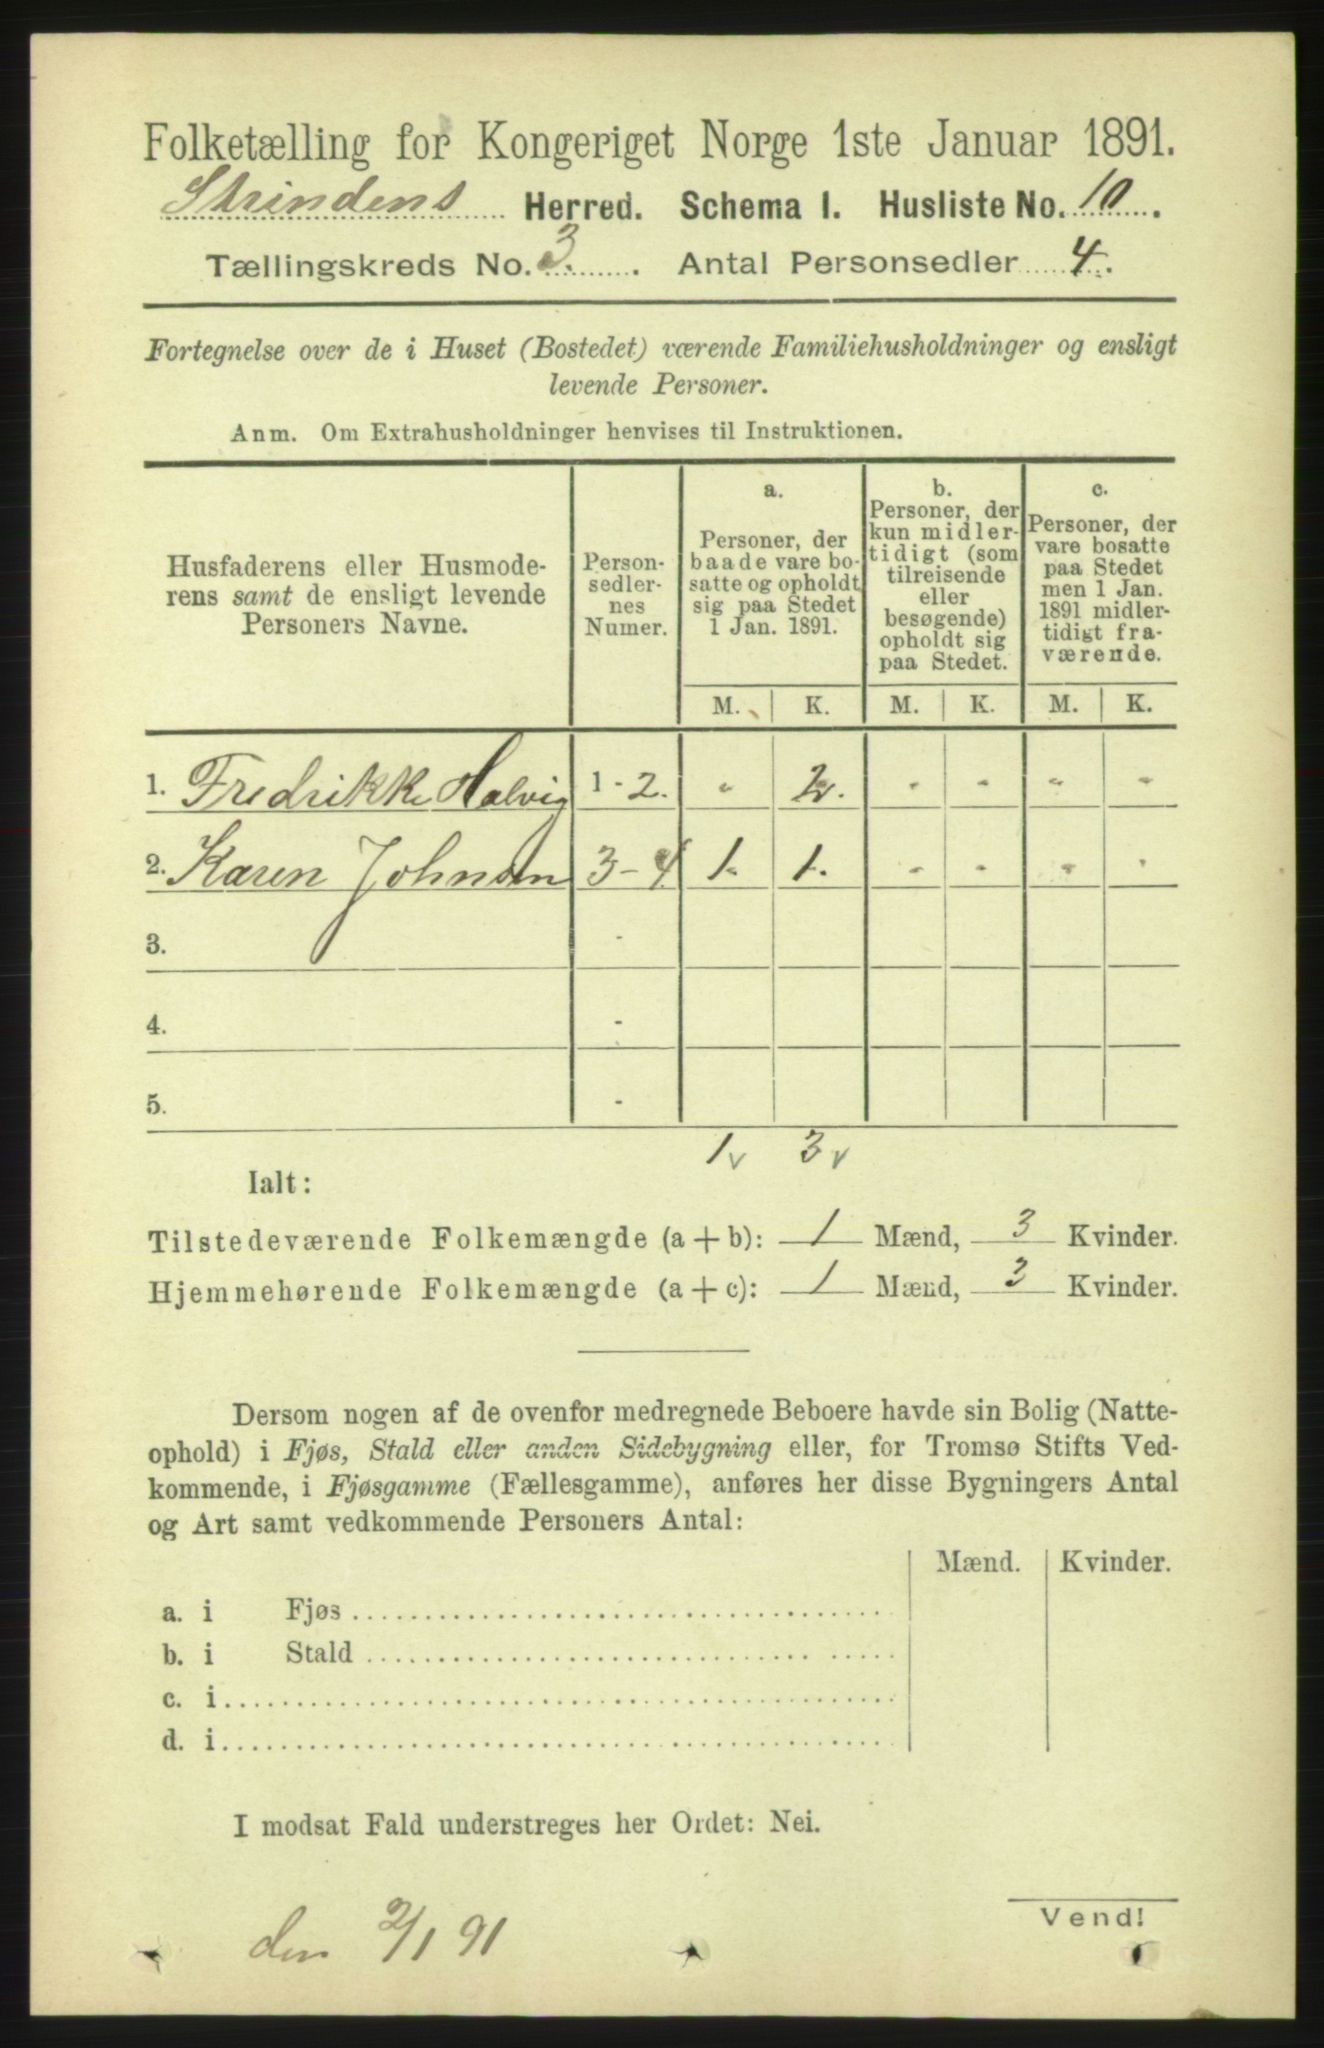 Folketælling for Kongeriget Norge 1ste Januar 1891.
Strindens Herred. Schema I. Husliste No. 10.
Tællingskreds No. 3. Antal Personsedler 4.
Fortegnelse over de i Huset (Bostedet) værende Familiehusholdninger og ensligt
levende Personer.
Anm. Om Extrahusholdninger henvises til Instruktionen.
Husfaderens eller Husmode-
rens samt de ensligt levende
Personers Navne.
Person-
sedler-
nes
Numer.
a.
Personer, der
baade vare bo-
satte og opholdt
sig paa Stedet
1 Jan. 1891.
b.
Personer, der
kun midler-
tidigt (som
tilreisende
eller
besøgende)
opholdt sig
paa Stedet.
c.
Personer, der
vare bosatte
paa Stedet
men 1 Jan.
1891 midler-
tidigt fra-
værende.
M. K. M. K. M. K.
1. Fredrikke Halvig 1 - 2. " 2. - - - -
2. Karen Johnsen 3 - 4 1. 1. - - - -
3. -
4. -
5. -
1 v 3 v
Ialt:
Tilstedeværende Folkemængde (a + b): 1 Mænd, 3 Kvinder.
Hjemmehørende Folkemængde (a + c): 1 Mænd, 3 Kvinder.
Dersom nogen af de ovenfor medregnede Beboere havde sin Bolig (Natte-
ophold) i Fjøs, Stald eller anden Sidebygning eller, for Tromsø Stifts Ved-
kommende, i Fjøsgamme (Fællesgamme), anføres her disse Bygningers Antal
og Art samt vedkommende Personers Antal:
Mænd. Kvinder.
a. i Fjøs
b. i Stald
c. i
d. i
I modsat Fald understreges her Ordet: Nei.
den 2/1 91
Vend!